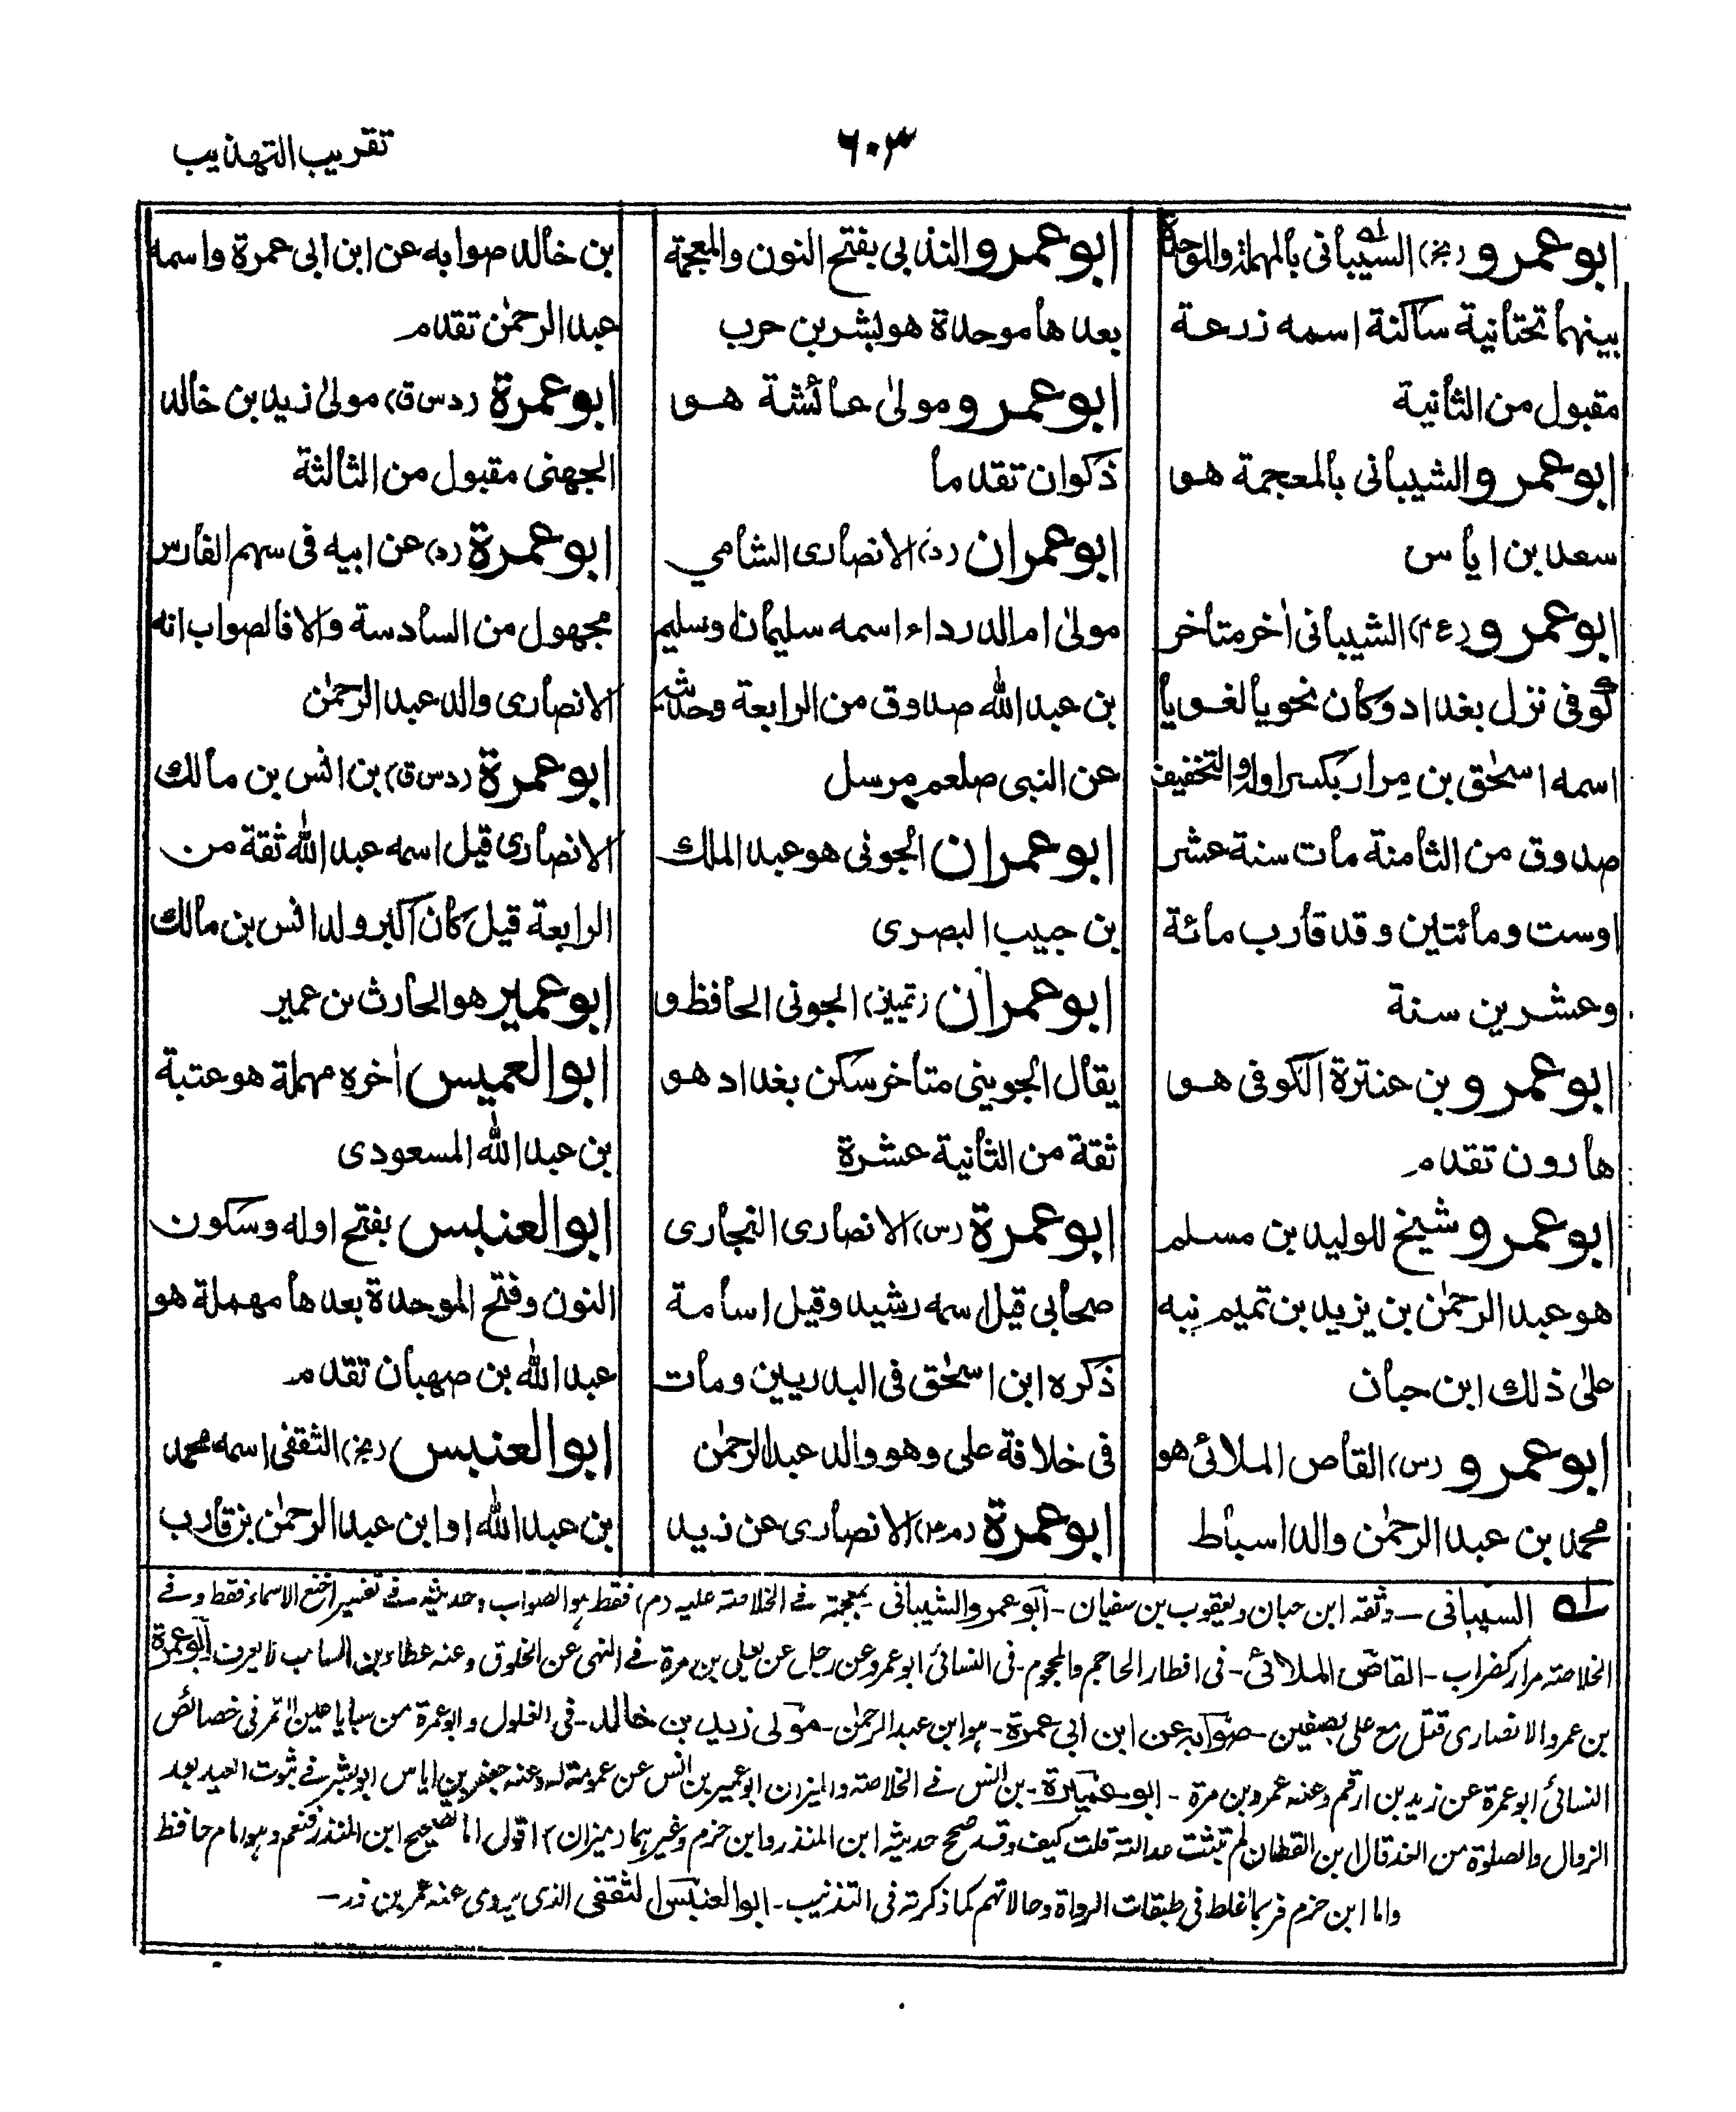 تقريب التهذيب
٦٠٣
ابو عمرو (بخ) السيبانى بالمهملة والموحدة
بينهما تحتانية ساكنة اسمه زرعة
مقبول من الثانية
ابو عمرو الشيبانى بالمعجمة هو
سعد بن اياس
ابو عمرو (ع م) الشيبانى اخر متأخر
كوفى نزل بغداد وكان نحويا لغويا
اسمه اسحٰق بن مِرار بكسر اوله والتخفيف
صدوق من الثامنة مات سنة عشر
اوست ومائتين وقد قارب مائة
وعشرين سنة
ابو عمرو بن عنترة الكوفى هو
هارون تقدم
ابو عمرو شيخ للوليد بن مسلم
هو عبد الرحمٰن بن يزيد بن تميم نبه
على ذلك ابن حبان
ابو عمرو (س) القاص الملائى هو
محمد بن عبد الرحمٰن والد اسباط
ابو عمرو الندبى بفتح النون والمعجمة
بعدها موحدة هو بشر بن حرب
ابو عمرو مولىٰ عائشة هو
ذكوان تقدما
ابو عمران (د) الانصارى الشامي
مولىٰ ام الدرداء اسمه سليمان وسليم
بن عبد الله صدوق من الرابعة وحديثه
عن النبى صلعم مرسل
ابو عمران الجونى هو عبد الملك
بن حبيب البصرى
ابو عمران (تمييز) الجونى الحافظ و
يقال الجوينى متأخر سكن بغداد هو
ثقة من الثانية عشرة
ابو عمرة (س) الانصارى النجارى
صحابى قيل اسمه رشيد وقيل اسامة
ذكره ابن اسحٰق فى البدريين ومات
فى خلافة على وهو والد عبد الرحمٰن
ابو عمرة الانصارى عن زيد
بن خالد صوابه عن ابن ابى عمرة واسمه
عبد الرحمٰن تقدم
ابو عمرة (د س ق) مولىٰ زيد بن خالد
الجهنى مقبول من الثالثة
ابو عمرة (د) عن ابيه فى سهم الفارس
مجهول من السادسة والا فالصواب انه
الانصارى والد عبد الرحمٰن
ابو عمرة (د س ق) بن انس بن مالك
الانصارى قيل اسمه عبد الله ثقة من
الرابعة قيل كان اكبر ولد انس بن مالك
ابو عمير هو الحارث بن عمير
ابو العميس اخره مهملة هو عتبة
بن عبد الله المسعودى
ابو العنبس بفتح اوله وسكون
النون وفتح الموحدة بعدها مهملة هو
عبد الله بن صهبان تقدم
ابو العنبس (بخ) الثقفى اسمه محمد
بن عبد الله او ابن عبد الرحمٰن بن قارب
له السيبانى – وثقه ابن حبان ويعقوب بن سفيان - ابو عمرو الشيبانى - بمعجمة فے الخلاصة عليه (م) فقط هو الصواب وحديثه فے تفسير اخنع الاسماء فقط وفے
الخلاصة مرار كضراب - القاص الملائى - فى افطار الحاجم والمحجوم - فى النسائى ابو عمرو عن رجل عن يعلى بن مرة فے النهى عن الخلوق وعنه عطاء بن السائب لا يعرف ابو عمرة
بن عمرو الانصارى قتل مع على بصفين - صوابه عن ابن ابى عمرة - هو ابن عبد الرحمٰن - مولى زيد بن خالد - فى الغلول وابو عمرة من سبايا عين التمر فى خصائص
النسائى ابو عمرة عن زيد بن ارقم وعنه عمرو بن مرة - ابو عميرة - بن انس فے الخلاصة والميزان ابو عمير بن انس عن عمومة له وعنه جعفر بن اياس ابو بشر فے ثبوت العيد بعد
الزوال والصلوة من الغد قال ابن القطان لم تثبت عدالته قلت كيف وقد صحح حديثه ابن المنذر وابن حزم وغيرهما (ميزان) ١٢ اقول اما تصحيح ابن المنذر فنعم وهو امام حافظ
واما ابن حزم فربما غلط فى طبقات الرواة وحالاتهم كما ذكرته فى التذنيب - ابو العنبس الثقفى الذى يروى عنه عمر بن ذر –